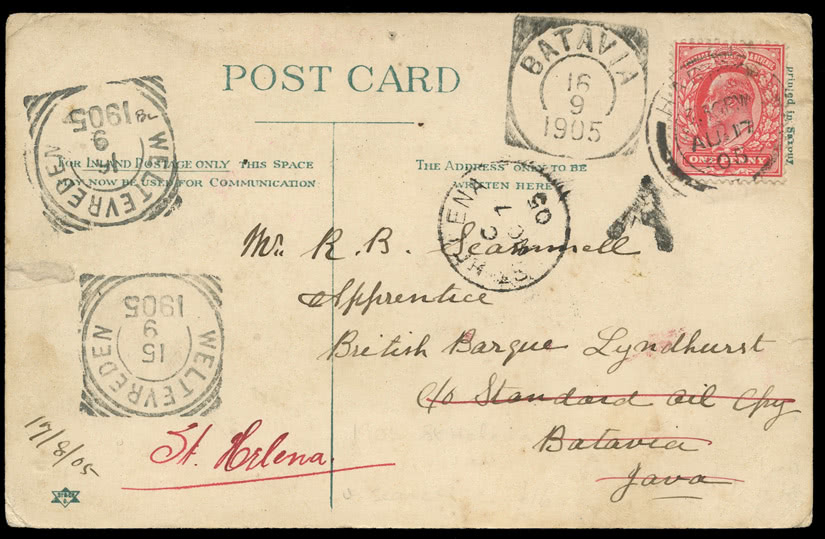 POST CARD
FOR INLAND POSTAGE ONLY THIS SPACE
MAY NOW BE USED FOR COMMUNICATION
THE ADDRESS ONLY TO BE
WRITTEN HERE
WELTEVREDEN
16
9
1905
BATAVIA
16
9
1905
AU 17
ONE PENNY
printed in Saxony
HELENA
05
A
Mr. R. B. Scammell
Apprentice
British Barque Lyndhurst
c/o Standard Oil Cpy
Batavia
Java
WELTEVREDEN
15
9
1905
St. Helena.
17/8/05